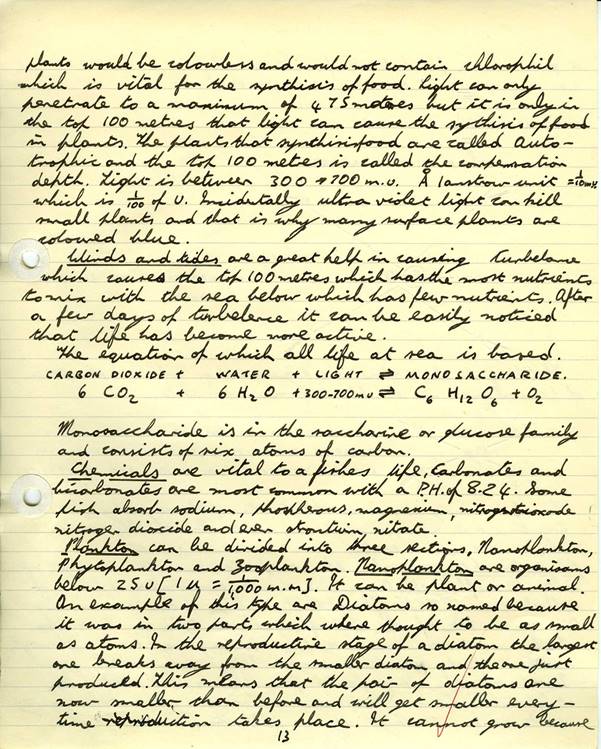 plants would be colourless and would not contain chlorophil
which is vital for the synthisis of food. Light can only
penetrate to a maximum of 475 metres but it is only in
the top 100 metres that light can cause the sythisis of food
in plants. The plants that synthisis food are called Auto-
trophic and the top 100 metres is called the compensation
depth. Light is between 300 → 700 m.u. Å 1 anstrow unit = 1/10 mu
which is 1/100 of U. Incidetally ultra violet light can kill
small plants and that is why many surface plants are
coloured blue.
Winds and tides are a great help in causing turbelance
which causes the top 100 metres which has the most nutrients
to mix with the sea below which has few nutrients. After
a few days of turbelence it can be easily noticed
that life has become more active.
The equation of which all life at sea is based.
CARBON DIOXIDE + WATER + LIGHT ⇌ MONOSACCHARIDE.
6 CO2 + 6 H2O + 300-700mu ⇌ C6 H12 O6 + O2
Monosaccharide is in the saccharine or glucose family
and consists of six atoms of carbon.
Chemicals are vital to a fishes life, carbonates and
bicarbonates are most common with a P.H. of 8.24. Some
fish absorb sodium, phospherous, magnesium,
nitroger dioxide and even strontium, nitrate.
Plankton can be divided into three sections, Nanoplankton,
Phytoplankton and Zooplankton. Nanoplankton are organisms
below 25 u [1 u = 1/1,000 m.m]. It can be plant or animal.
An example of this type are Diatoms so named because
it was in two parts, which where thought to be as small
as atoms. In the reproductive stage of a diatom the largest
one breaks away from the smaller diatom and the one just
produced. This means that the pair of diatoms are
now smaller than before and will get smaller every-
time reproduction takes place. It cannot grow because
13